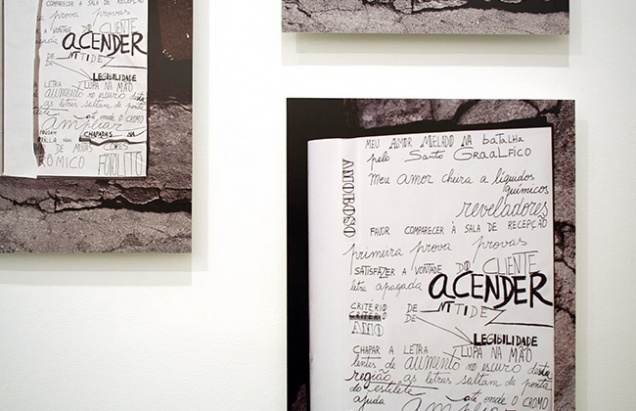 COMPARECER A SALA DE RECEPÇÃO
prova provas
A VONTADE DO CLIENTE
apagada ACENDER
DE NITIDEZ
DE
LEGIBILIDADE
A LETRA LUPA NA MÃO
de aumento no escuro desta
as letras saltam da ponta
até onde o CROMO
ampliar
CHAPADAS NA
DE MEIOS CORES
CRÔMICO FOTOLITO
MEU AMOR MIELADO NA BATALHA
pelo Santo GRAALFICO
Meu amor chora a líquidos
químicos
reveladores
AMOROSO
FAVOR COMPARECER À SALA DE RECEPÇÃO
primeira prova provas
SATISFAZER A VONTADE DO CLIENTE
letra apagada ACENDER
CRITÉRIO DE NITIDEZ
CRITÉRIO DE
AMO LEGIBILIDADE
CHAPAR A LETRA LUPA NA MÃO
lentes de aumento no escuro desta
região as letras saltam da ponta
do estilete
ajuda até onde o CROMO
ampliar